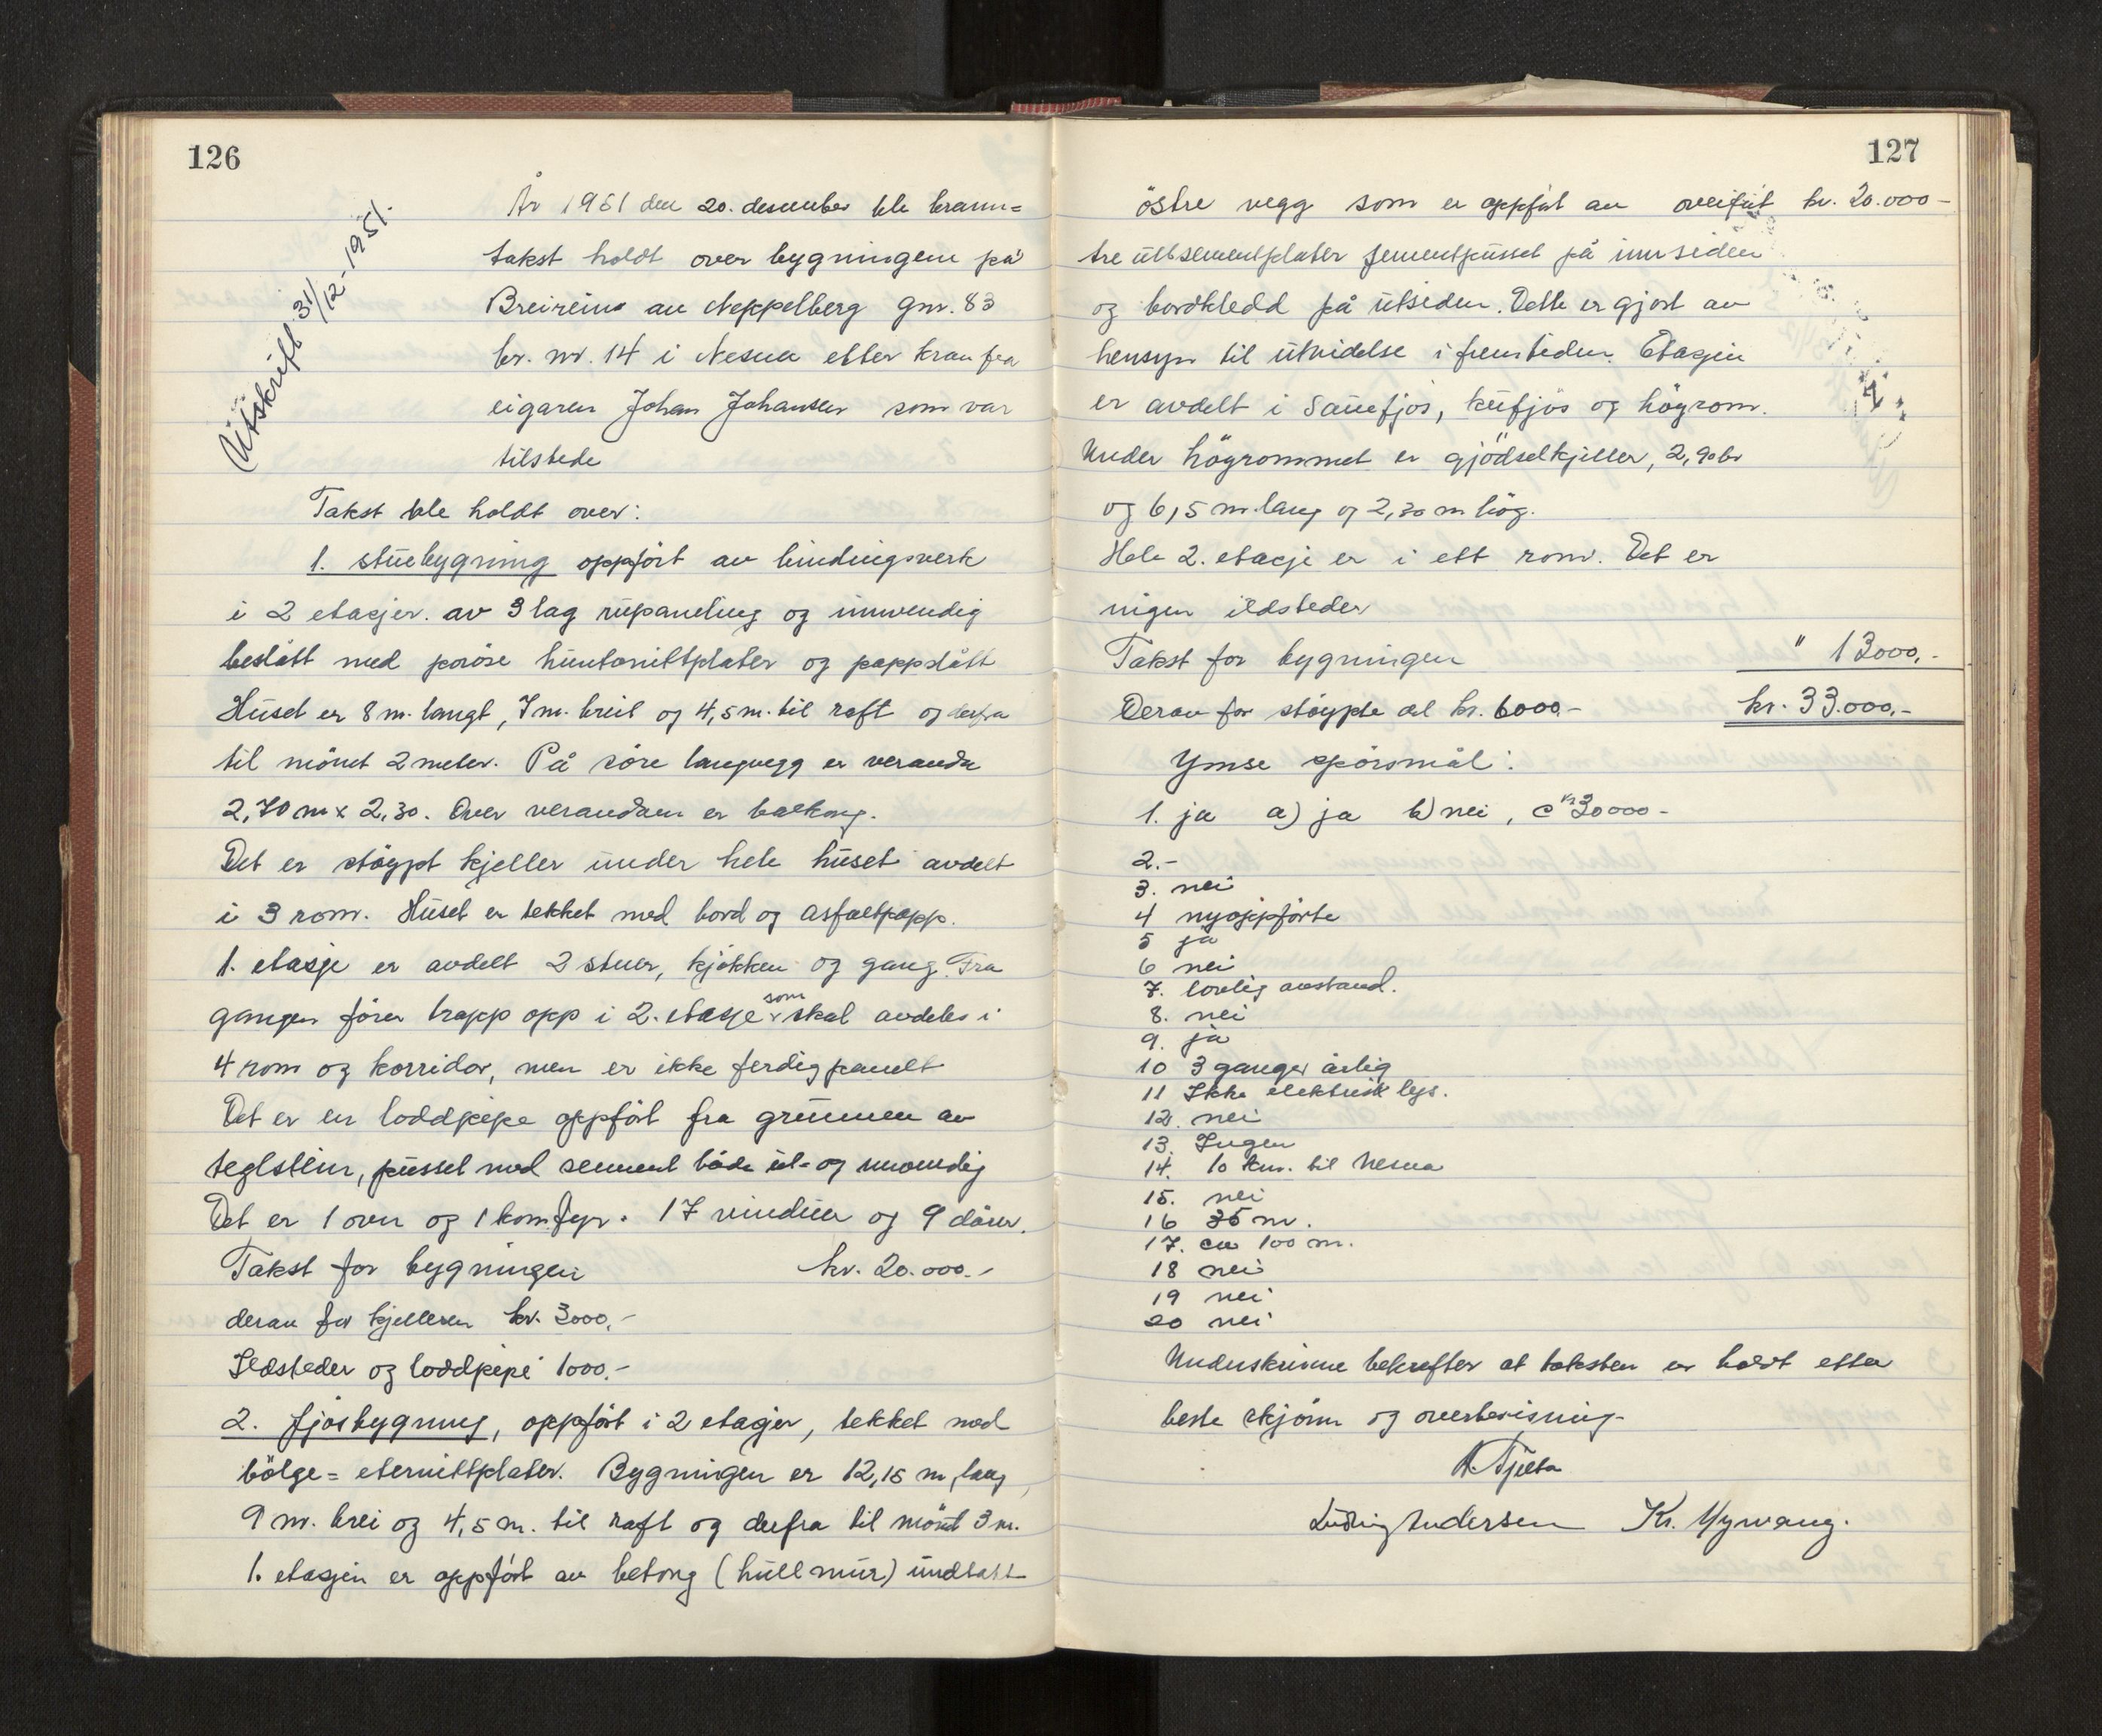 126
Utskrift 31/12-1951.
År 1951 den 20. desember ble brann=
takst holdt over bygningene på
Breireina av Neppelberg gnr. 83
br. nr. 14 i Nesna etter krav fra
eigaren Johan Johansen som var
tilstede
Takst ble holdt over:
1. stuebygning oppfört av bindingsverk
i 2 etasjer. av 3 lag rupaneling og innvendig
beslått med poröse huntonittplater og pappslått
Huset er 8 m. langt, 7 m. breit og 4,5 m. til raft og derfra
til mönet 2 meter. På söre langvegg er veranda
2,70 m x 2,30. Over verandaen er balkong.
Det er stöypt kjeller under hele huset avdelt
i 3 rom. Huset er tekket med bord og asfaltpapp.
1. etasje er avdelt 2 stuer, kjökken og gang. Fra
gangen förer trapp opp i 2. etasje som skal avdeles i
4 rom og korridor, men er ikke ferdig panelt
Det er en loddpipe oppfört fra grunnen av
teglstein, pusset med sement både ut- og innvendig
Det er 1 ovn og 1 komfyr. 17 vinduer og 9 dörer.
Takst for bygningen kr. 20.000.-
derav for kjelleren kr. 3000,-
Ildsteder og loddpipe 1000.-
2. fjösbygning, oppfört i 2 etasjer, tekket med
bölge= eternittplater. Bygningen er 12,15 m lang,
9 m. brei og 4,5 m. til raft og derfra til mönet 3 m.
1. etasjen er oppfört av betong (hullmur) undtatt
127
östre vegg som er oppfört av overfört kr. 20.000-
treullsementplater sementpusset på innsiden
og bordkledd på utsiden. Dette er gjort av
hensyn til utvidelse i fremtiden. Etasjen
er avdelt i sauefjös, kufjös og högrom.
Under högrommet er gjödselkjeller, 2,90 br
og 6,5 m. lang og 2,30 m hög.
Hele 2. etasje er i ett rom. Det er
nigen ildsteder
Takst for bygningen " 13000,-
Derav for stöypte del kr. 6000.- kr. 33.000,-
Ymse spörsmål:
1. ja a) ja b) nei, c kr 30000-
2.-
3. nei
4 nyoppförte
5 ja
6 nei
7. lovlig avstand.
8. nei
9. ja
10 3 ganger årlig
11 Ikke elektrisk lys.
12. nei
13. Ingen
14. 10 km. til Nesna
15. nei
16 35 m.
17. ca 100 m.
18 nei
19 nei
20 nei
Underskrivne bekrefter at taksten er holdt etter
beste skjönn og overbevisning.
Ludvig Andersen Kr. Myrvang.